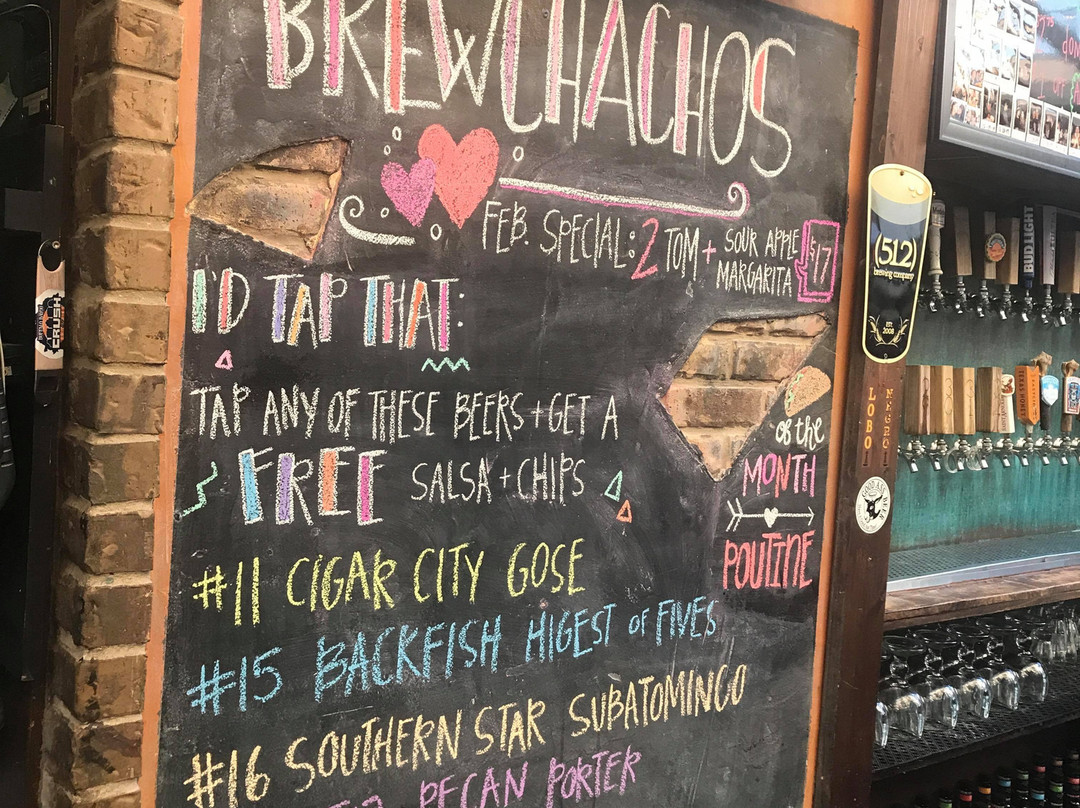 BREWCHACHOS
FEB. SPECIAL: 2 TOM + SOUR APPLE MARGARITA $17
I'D TAP THAT:
TAP ANY OF THESE BEERS + GET A
FREE SALSA + CHIPS
of the
MONTH
POUTINE
#11 CIGAR CITY GOSE
#15 BACKFISH HIGEST OF FIVES
#16 SOUTHERN STAR SUBATOMINGO
PECAN PORTER
(512)
brewing company
EST.
2008
LOBO
NEGRO
CRUSH
BUD LIGHT